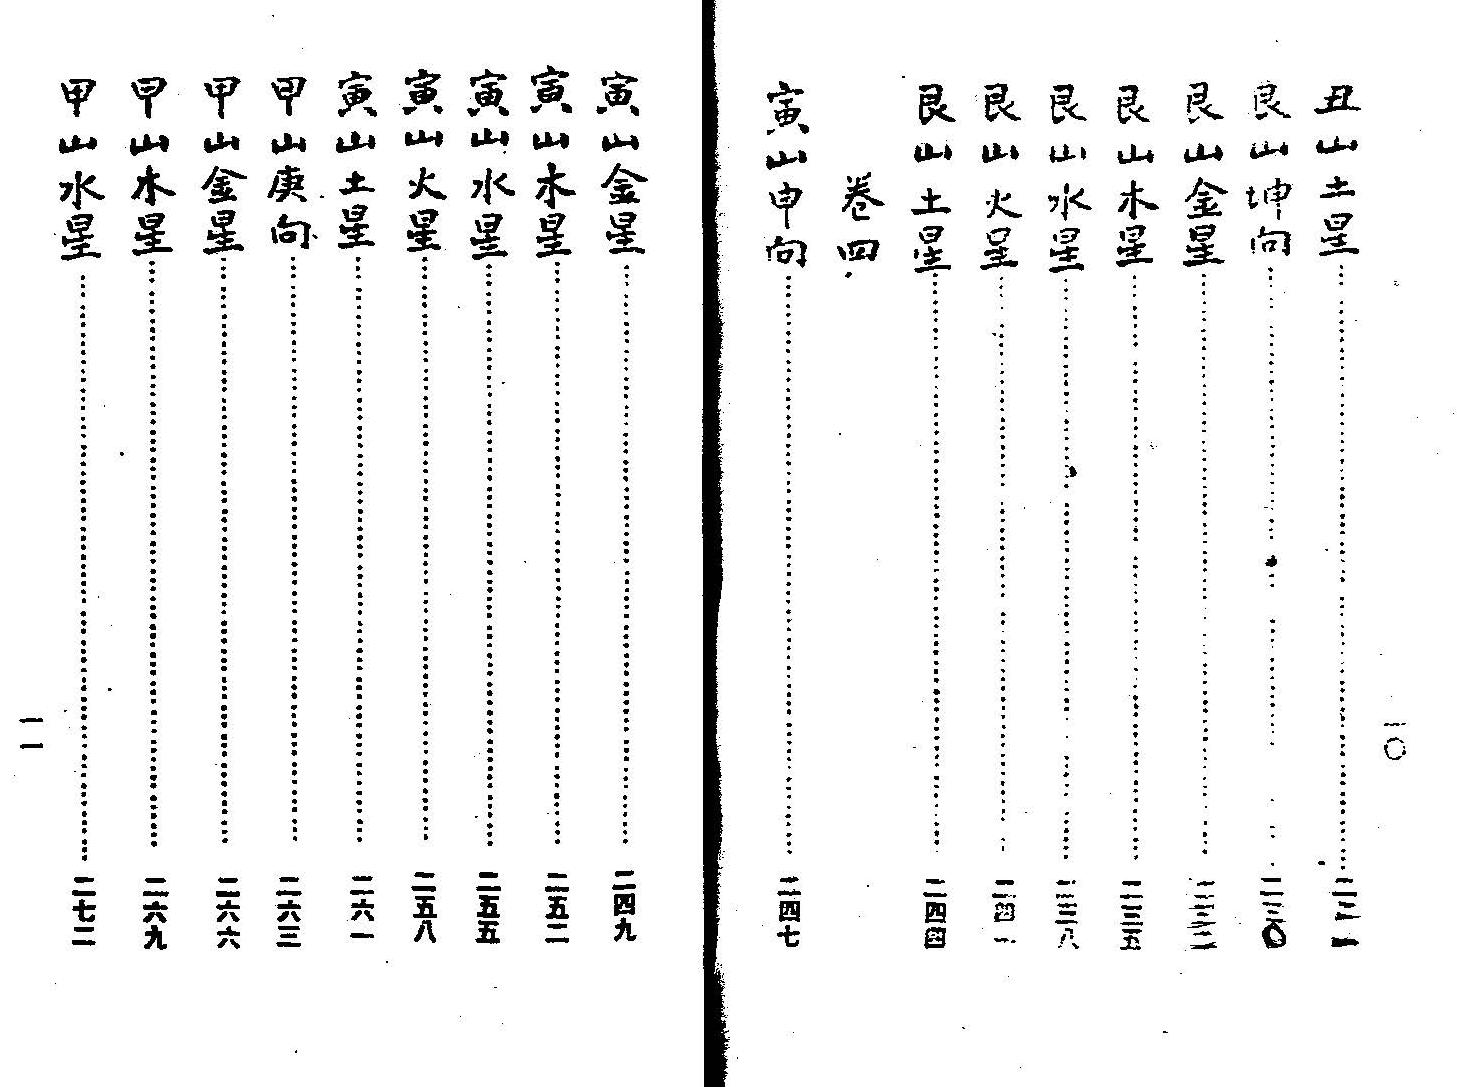 丑山土星………
艮山坤向………二三〇
艮山金星………二三二
艮山木星………二三五
艮山水星………二三八
艮山火星………二四一
艮山土星………二四四
卷四
寅山申向………二四七
一〇
寅山金星………二四九
寅山木星………二五二
寅山水星………二五五
寅山火星………二五八
寅山土星………二六一
甲山庚向………二六三
甲山金星………二六六
甲山木星………二六九
甲山水星………二七二
一一